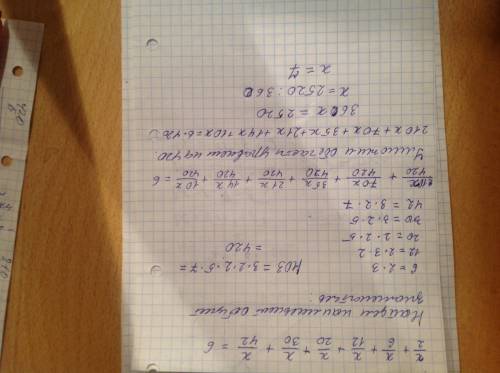 x/2 + x/6 + x/12 + x/20 + x/30 + x/42 = 6
Найдем наименьший общий
знаменатель:
6 = 2·3
12 = 2·3·2
20 = 2·2·5
30 = 3·2·5
42 = 3·2·7
НОЗ = 3·2·2·5·7 =
= 420
210x/420 + 70x/420 + 35x/420 + 21x/420 + 14x/420 + 10x/420 = 6
Умножим обе части уравнения на 420:
210x+70x+35x+21x+14x+10x=6·420
360x = 2520
x = 2520 : 360
x = 7